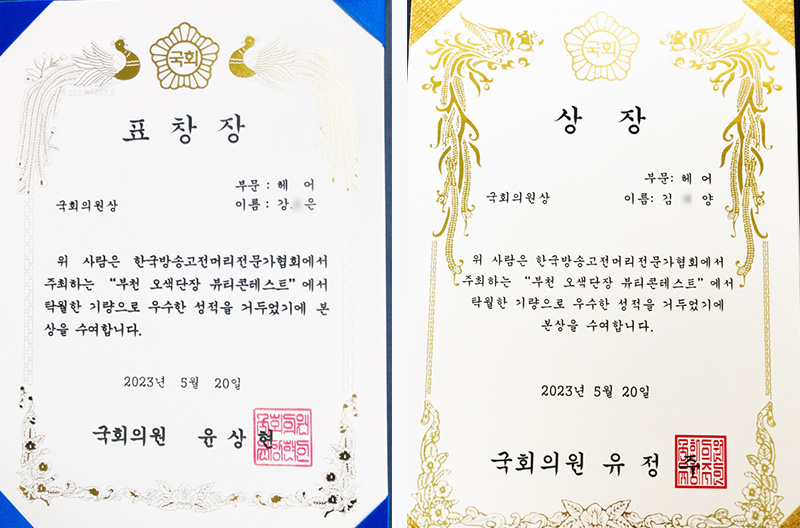 국회
표 창 장
부문 : 헤 어
국회의원상
이름 : 강 은
위 사람은 한국방송고전머리전문가협회에서
주최하는 “부천 오색단장 뷰티콘테스트”에서
탁월한 기량으로 우수한 성적을 거두었기에 본
상을 수여합니다.
2023년 5월 20일
국회의원 윤상현
국회
상 장
부문: 헤 어
국회의원상
이름: 김 양
위 사람은 한국방송고전머리전문가협회에서
주최하는 “부천 오색단장 뷰티콘테스트”에서
탁월한 기량으로 우수한 성적을 거두었기에
본상을 수여합니다.
2023년 5월 20일
국회의원 유 정 주